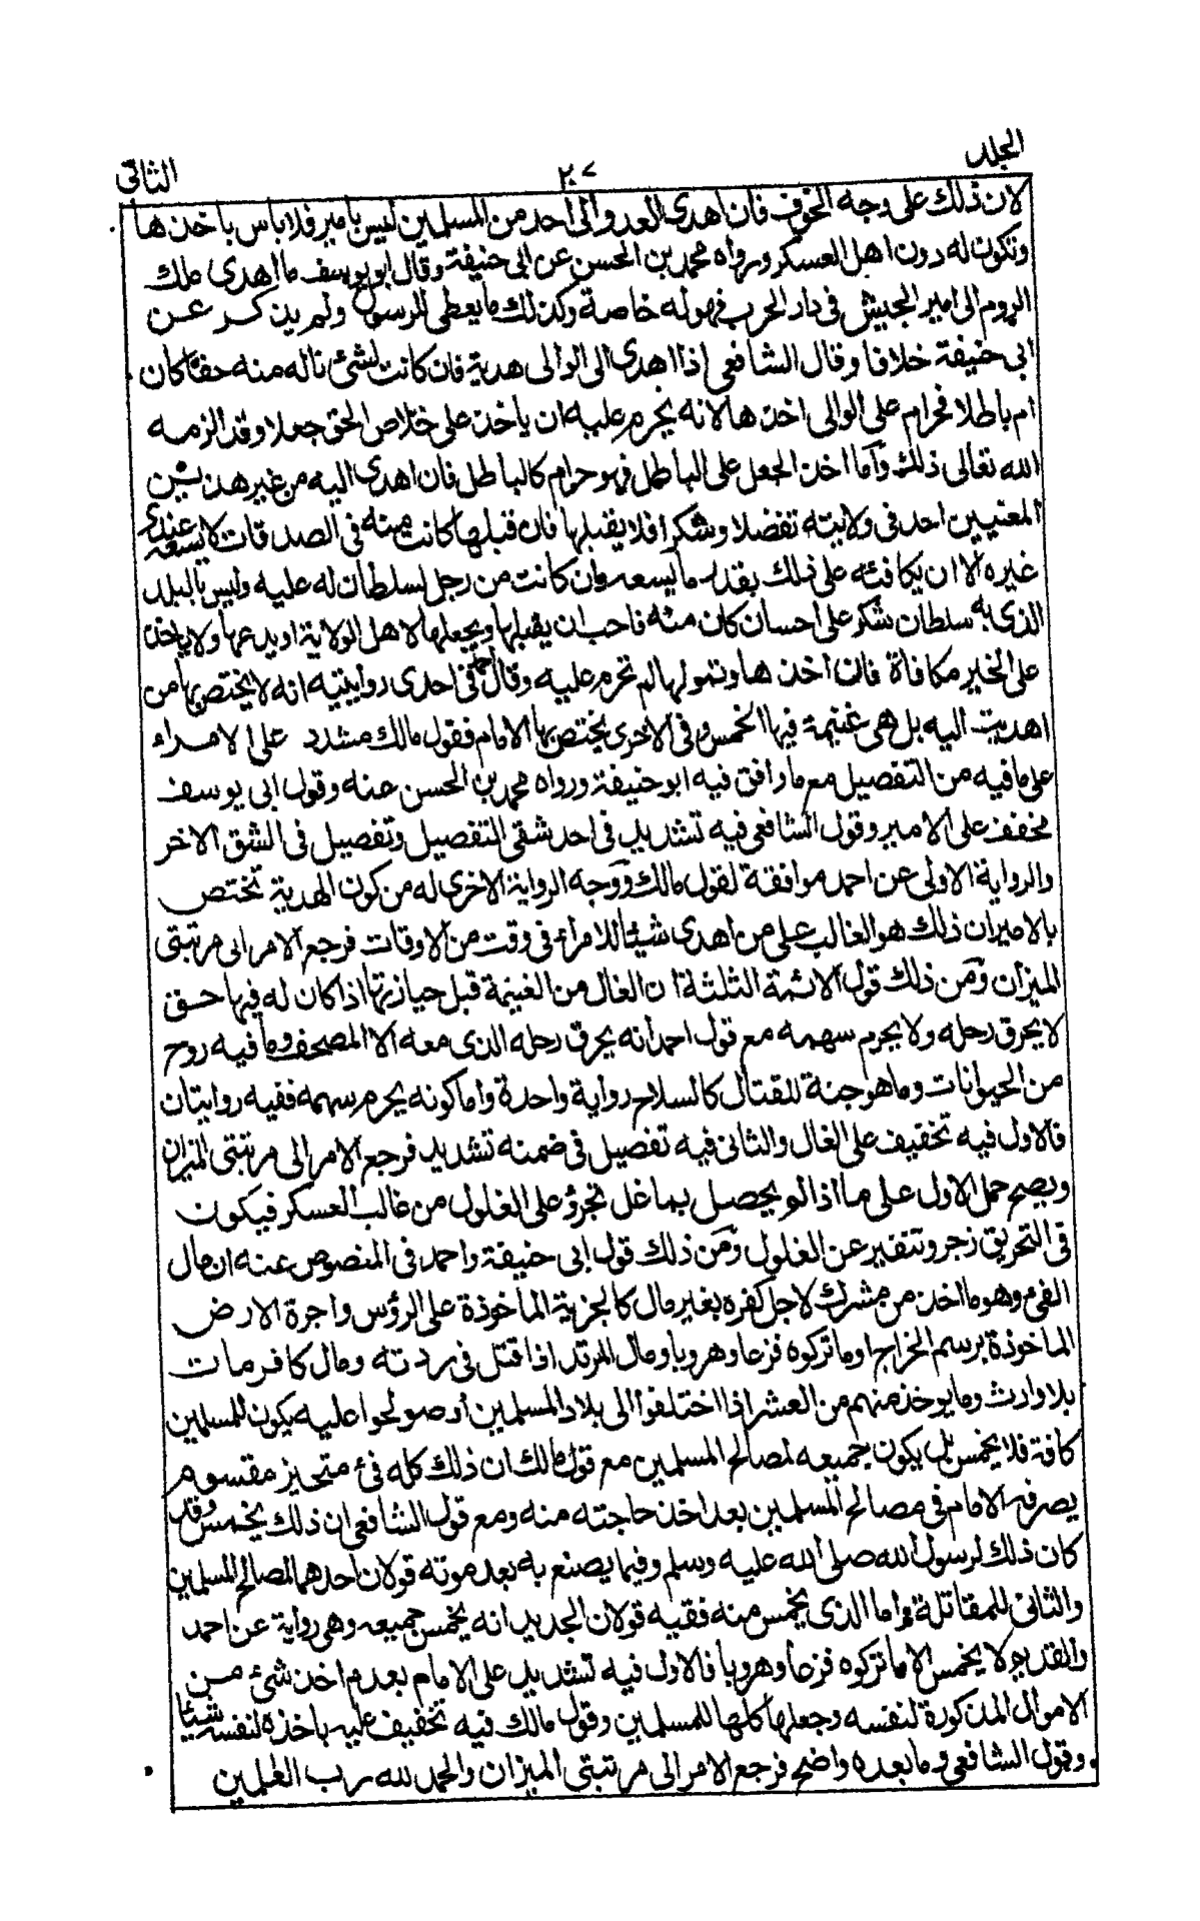 المجلد
٢٠٧
الثانى
لان ذلك على وجه الخوف فان اهدى العدو الى احد من المسلمين ليس بامير فلا باس باخذها
وتكون له دون اهل العسكر ورواه محمد بن الحسن عن ابى حنيفة وقال ابو يوسف ما اهدى ملك
الروم الى امير الجيش فى دار الحرب فهو له خاصة وكذلك ما يعطى للرسول ولم يذكر عن
ابى حنيفة خلافا وقال الشافعى اذا اهدى الى الوالى هدية فان كانت لشئ ناله منه حقا كان
ام باطلا فحرام على الوالى اخذها لانه يحرم عليه ان ياخذ على خلاص الحق جعلا وقد الزمه
الله تعالى ذلك واما اخذ الجعل على الباطل فهو حرام كالباطل فان اهدى اليه من غير هذين
المعنيين احد فى ولايته تفضلا وشكرا فلا يقبلها فان قبلها كانت منه فى الصدقات لا يسعه عندى
غيره الا ان يكافئه على ذلك بقدر ما يسعه وان كانت من رجل لسلطان له عليه وليس بالبلد
الذى به سلطان شكر على احسان كان منه فاحب ان يقبلها ويجعلها لاهل الولاية او يدعها ولا ياخذ
على الخير مكافاة فان اخذها وتمولها لم تحرم عليه وقال احمد فى احدى روايتيه انه لا يختص بها من
اهديت اليه بل هى غنيمة فيها الخمس وفى الاخرى يختص بها الامام فقول مالك مشدد على الامراء
على ما فيه من التفصيل مع ما وافق فيه ابو حنيفة ورواه محمد بن الحسن عنه وقول ابى يوسف
مخفف على الامير وقول الشافعى فيه تشديد فى احد شقى التفصيل وتفصيل فى الشق الاخر
والرواية الاولى عن احمد موافقة لقول مالك ووجه الرواية الاخرى له من كون الهدية تختص
بالامير ان ذلك هو الغالب على من اهدى شيئا للامراء فى وقت من الاوقات فرجع الامر الى مرتبتى
الميزان ومن ذلك قول الائمة الثلثة ان الغال من الغنيمة قبل حيازتها اذا كان له فيها حق
لا يحرق رحله ولا يحرم سهمه مع قول احمد انه يحرق رحله الذى معه الا المصحف وما فيه روح
من الحيوانات وما هو جنة للقتال كالسلاح رواية واحدة واما كونه يحرم سهمه ففيه روايتان
فالاول فيه تخفيف على الغال والثانى فيه تفصيل فى ضمنه تشديد فرجع الامر الى مرتبتى الميزان
ويصح حمل الاول على ما اذا لم يحصل بما غل تجرؤ على الغلول من غالب العسكر فيكون
فى التحريق زجر وتنفير عن الغلول ومن ذلك قول ابى حنيفة واحمد فى المنصوص عنه ان مال
الفئ وهو ما اخذ من مشرك لاجل كفره بغير مال كالجزية الماخوذة على الرؤس واجرة الارض
الماخوذة برسم الخراج او ما تركوه فزعا وهروبا ومال المرتد اذا قتل فى ردته ومال كافر مات
بلا وارث وما يوخذ منهم من العشر اذا اختلفوا الى بلاد المسلمين او صولحوا عليه يكون للمسلمين
كافة فلا يخمس بل يكون جميعه لمصالح المسلمين مع قول مالك ان ذلك كله فئ متحيز مقسوم
يصرفه الامام فى مصالح المسلمين بعد اخذ حاجته منه ومع قول الشافعى ان ذلك يخمس وقد
كان ذلك لرسول الله صلى الله عليه وسلم وفيما يصنع به بعد موته قولان احدهما لمصالح المسلمين
والثانى للمقاتلة واما الذى يخمس منه ففيه قولان الجديد انه يخمس جميعه وهى رواية عن احمد
والقديم لا يخمس الا ما تركوه فزعا وهروبا فالاول فيه تشديد على الامام بعدم اخذ شئ من
الاموال المذكورة لنفسه وجعلها كلها للمسلمين وقول مالك فيه تخفيف عليه باخذه لنفسه شيئا
وقول الشافعى وما بعده واضح فرجع الامر الى مرتبتى الميزان والحمد لله رب العلمين